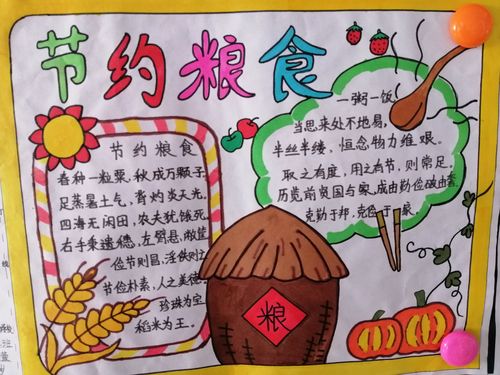 节约粮食
节约粮食
春种一粒粟,秋成万颗子,
足蒸暑土气,背灼炎天光。
四海无闲田,农夫犹饿死。
右手秉遗穗,左臂悬敝筐
俭节则昌,淫佚则亡
节俭朴素,人之美德
珍珠为宝
稻米为王。
一粥一饭
当思来处不地易,
半丝半缕,恒念物力维艰。
取之有度,用之有节,则常足。
历览前贤国与家,成由勤俭破由奢
克勤于邦,克俭于家
粮